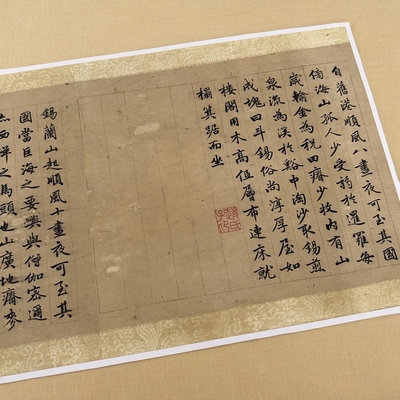 自舊港順風八晝夜可至其國
傍海山孤人少受弱於暹羅每
歲輸金為稅田瘠少收內有山
泉流為溪於谿中淘沙取錫煎
成塊曰斗錫俗尚淳厚屋如
樓閣用木高低層布連床就
榻箕踞而坐
錫蘭山起順風十晝夜可至其
國當巨海之要與僧伽密邇
西洋之馬頭也山廣地瘠麥